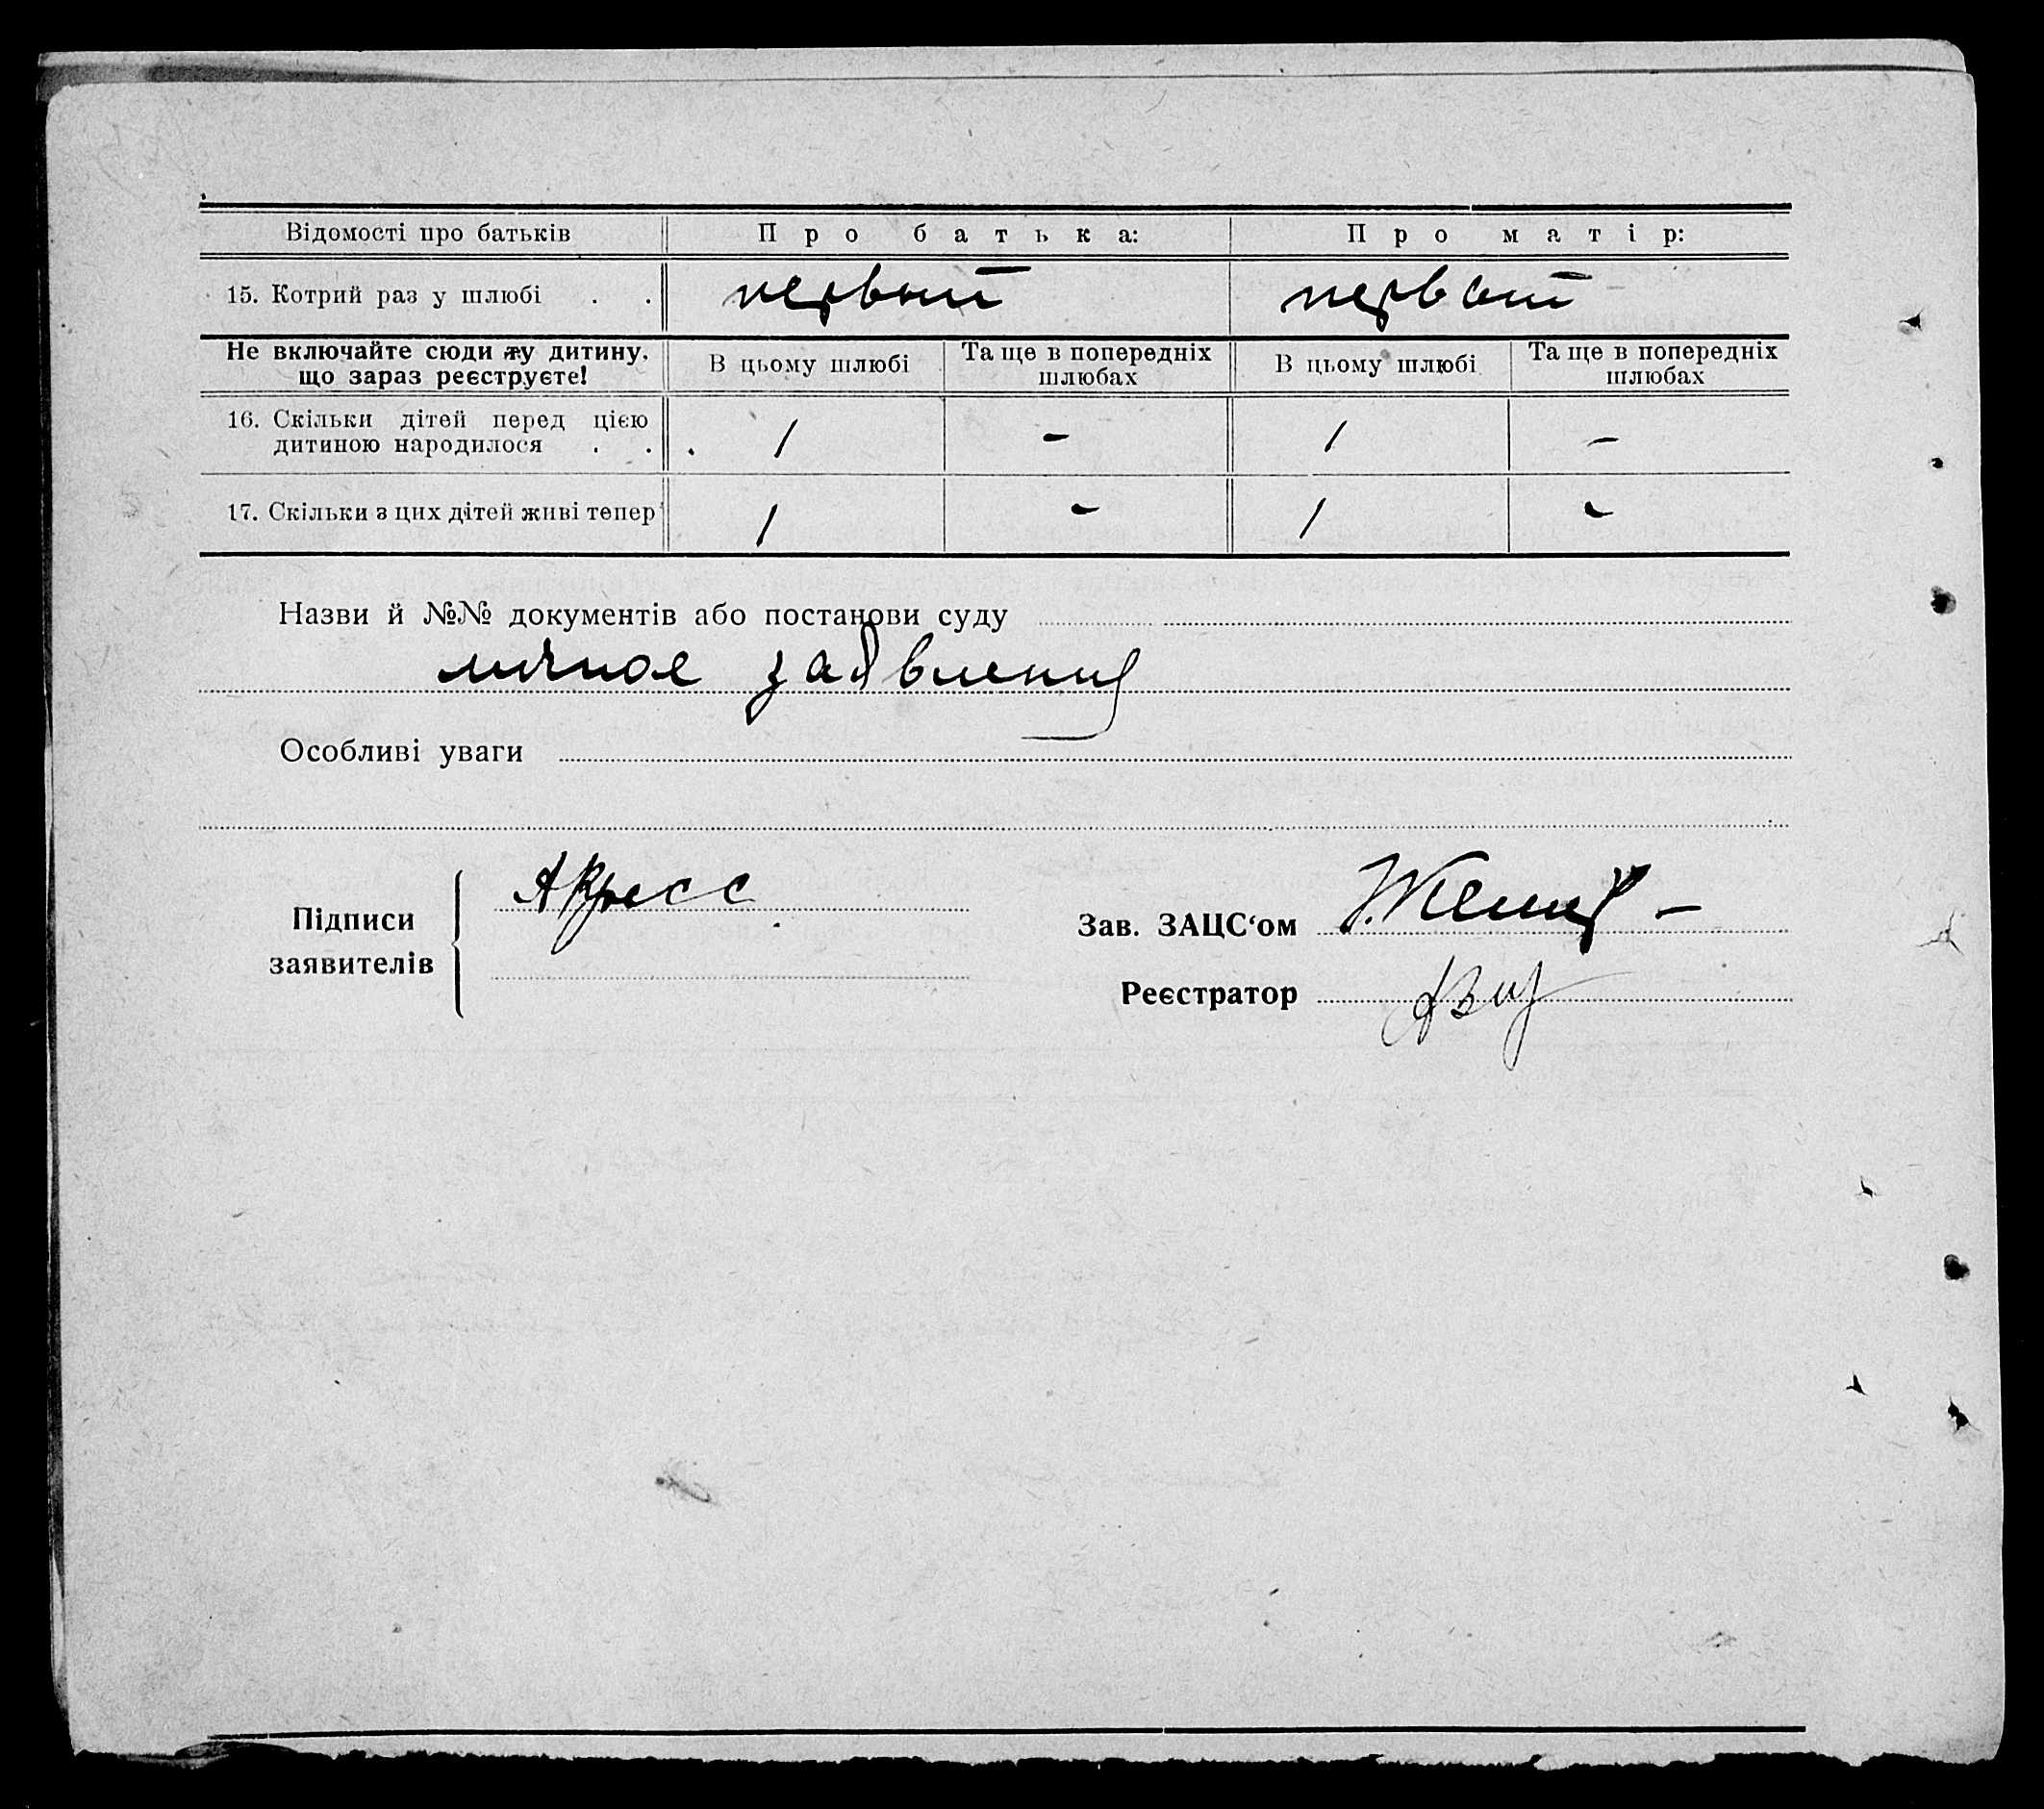 Відомості про батьків
Про батька:
Про матір:
15. Котрий раз у шлюбі . .
первый
первый
Не включайте сюди ту дитину,
що зараз реєструєте!
В цьому шлюбі
Та ще в попередніх
шлюбах
В цьому шлюбі
Та ще в попередніх
шлюбах
16. Скільки дітей перед цією
дитиною народилося . .
1
-
1
-
17. Скільки з цих дітей живі тепер
1
-
1
-
Назви й №№ документів або постанови суду
личное заявления
Особливі уваги
Підписи
заявителів
АКресс
Зав. ЗАЦС‘ом
Реєстратор